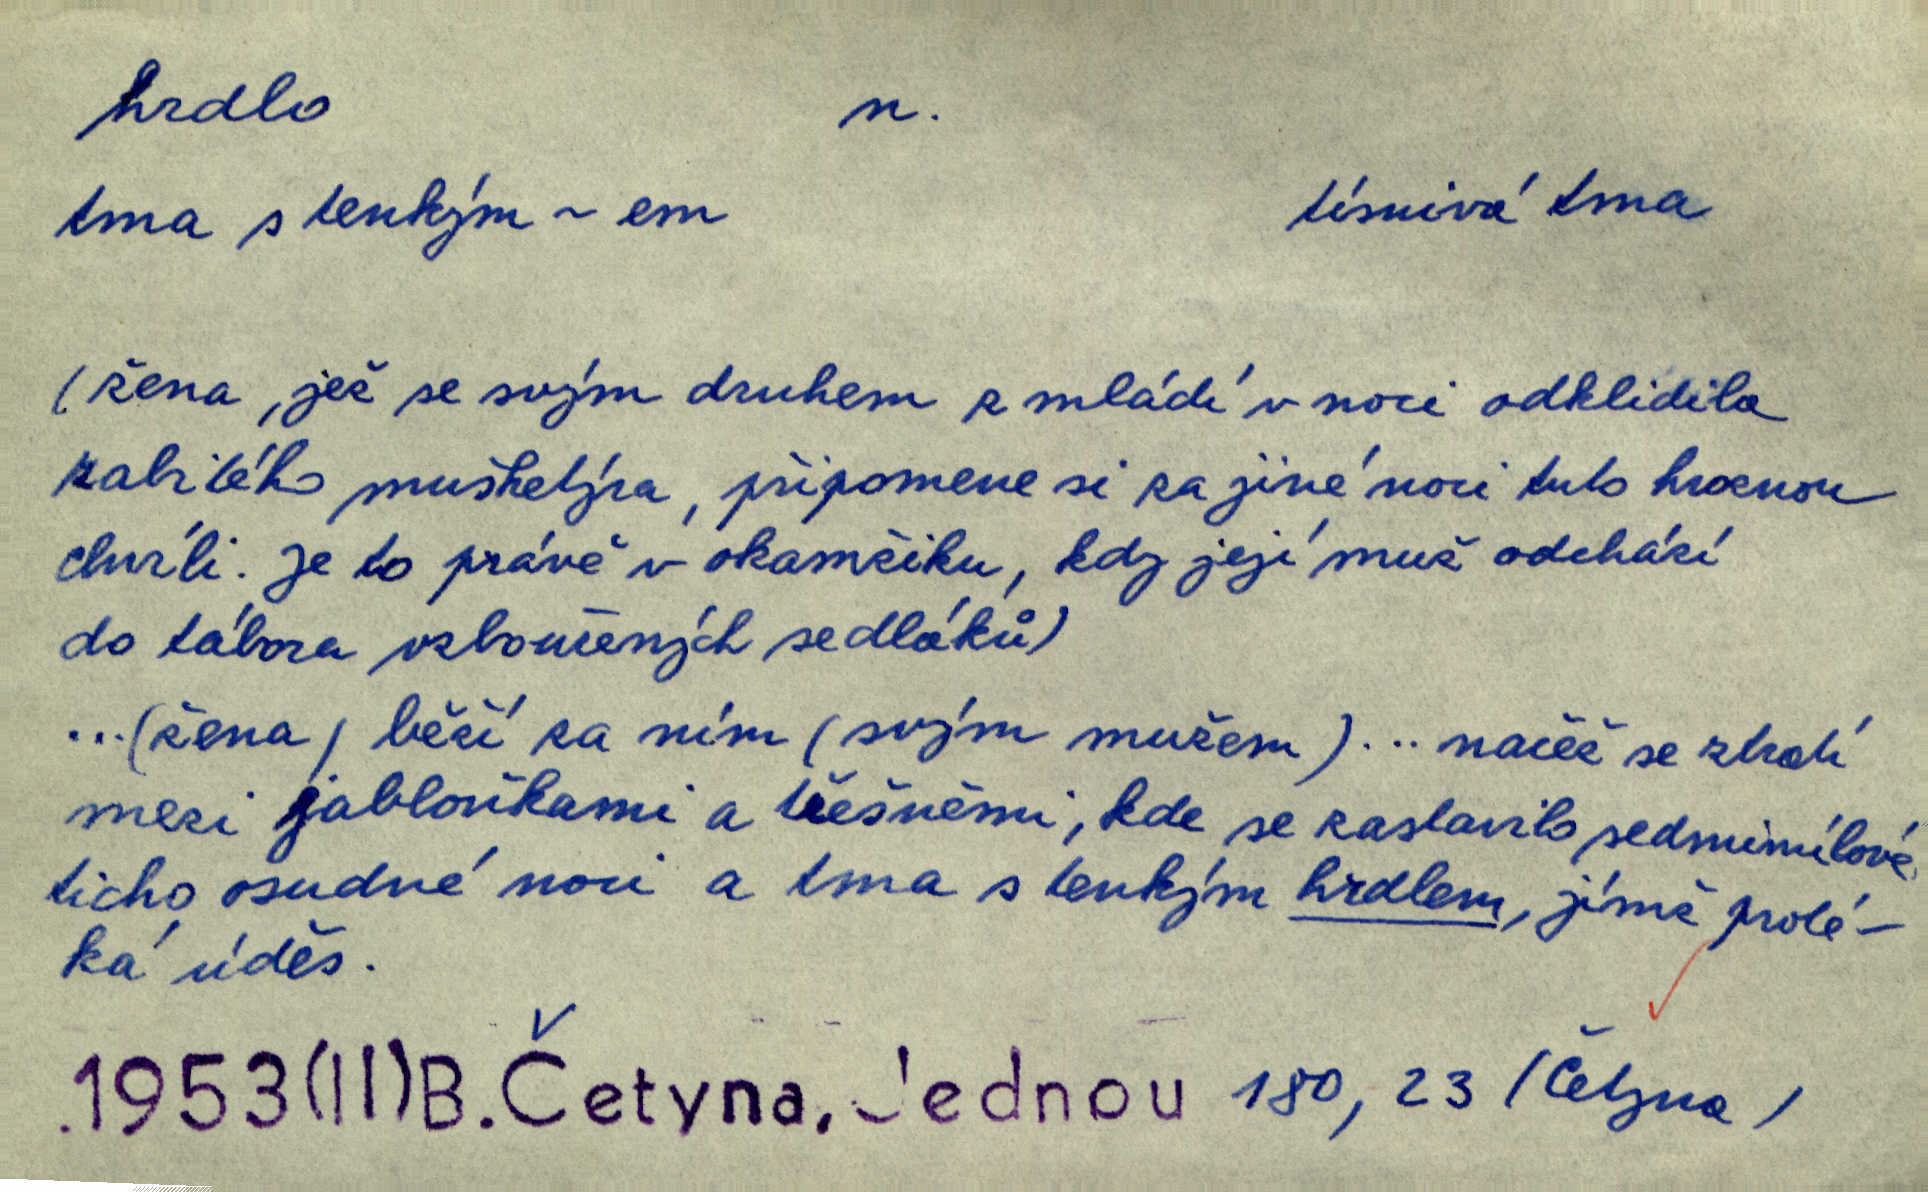 hrdlo n.
tma s tenkým ~ em tísnivá tma
(žena, jež se svým druhem z mládí v noci odklidila
zabitého mušketýra, připomene si za jiné noci tuto hroznou
chvíli. Je to právě v okamžiku, kdy její muž odchází
do tábora vzbouřených sedláků)
...(žena) běží za ním (svým mužem)... načež se ztratí
mezi jabloňkami a třešněmi, kde se zastavilo sedmimílové
ticho osudné noci a tma s tenkým hrdlem, jímž proté-
ká úděs.
.1953(II)B. Četyna, Jednou 180, 23 (Četyna)